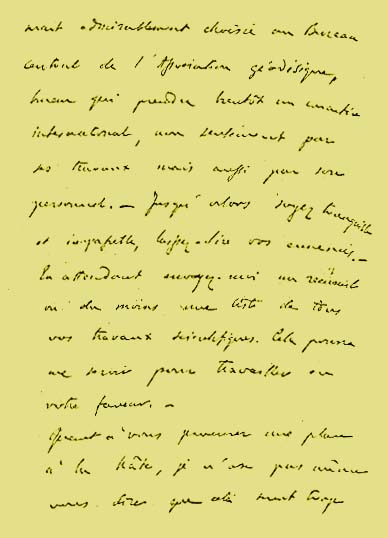 serait admirablement choisie au Bureau
Central de l'Association géodésique,
bureau qui prendra bientôt un caractère
international, non seulement par
ses travaux mais aussi par son
personnel. — Jusqu'alors soyez tranquille
et laissez-dire vos ennemis. —
En attendant envoyez-moi un recueil
ou du moins une liste de tous
vos travaux scientifiques. Cela pourra
me servir pour travailler en
votre faveur. —
Quant à vous procurer une place
à la hâte, je n'ose pas même
vous dire que cela serait trop